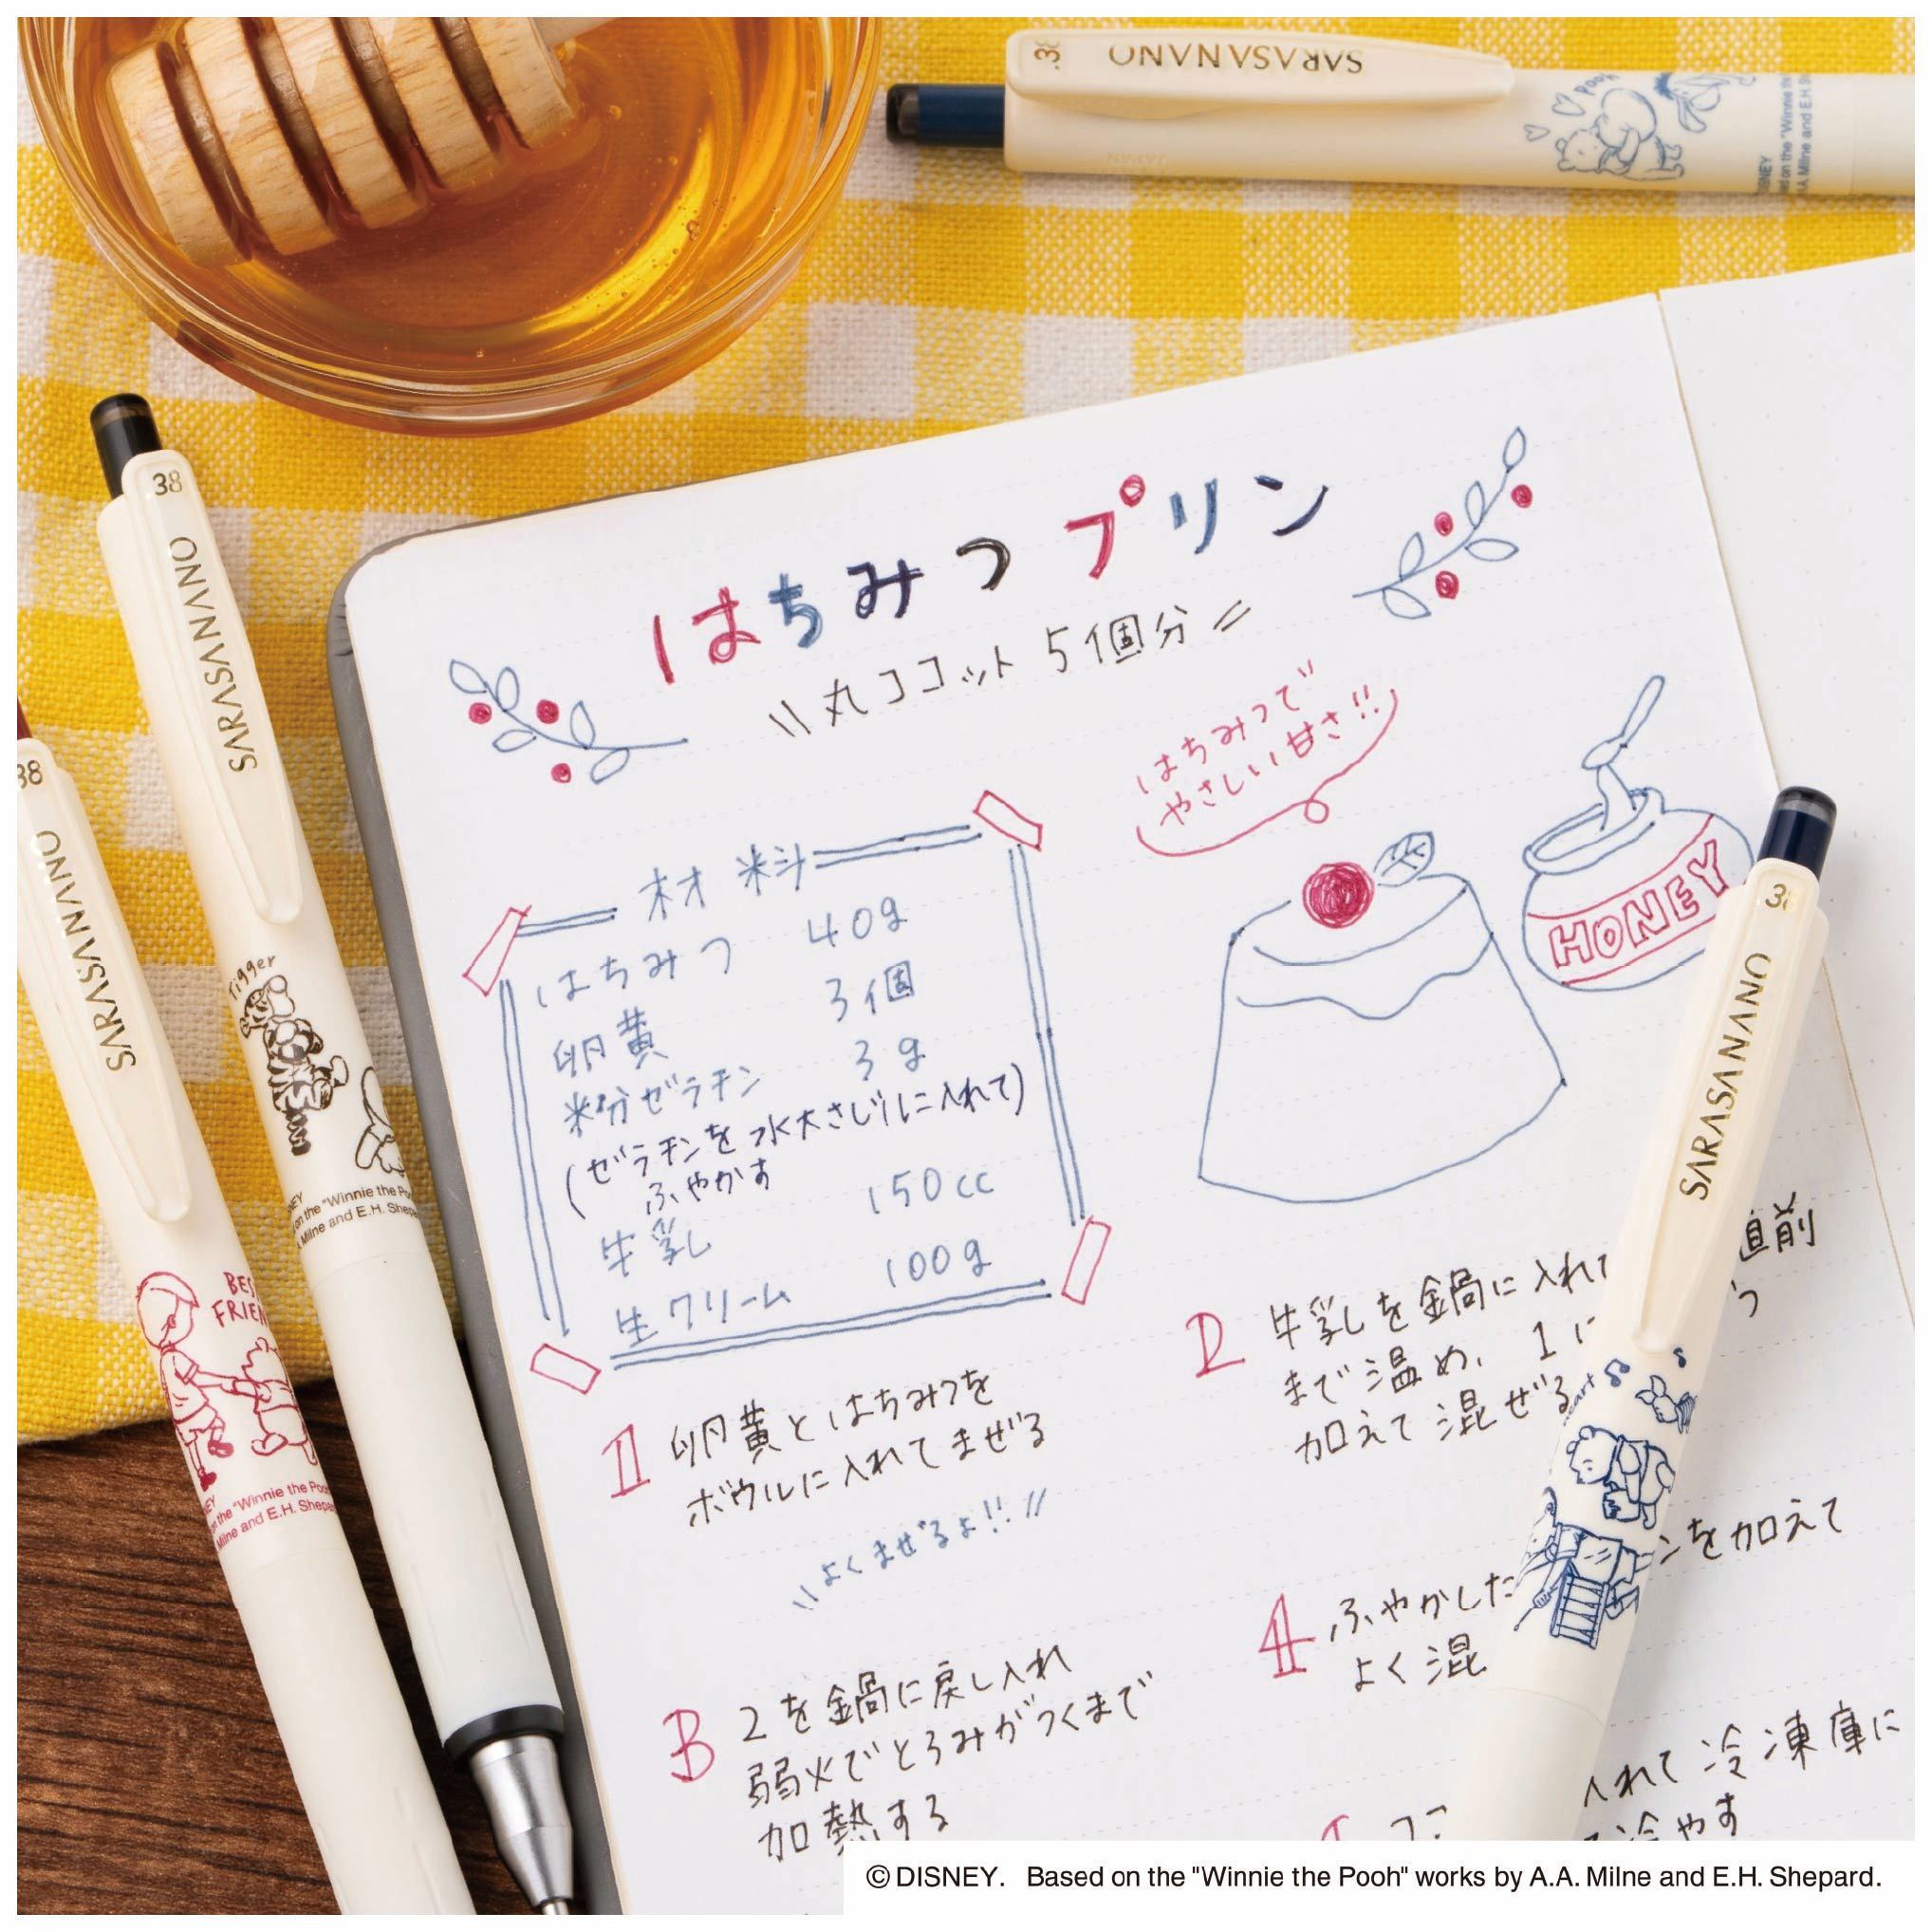 SARASANANO
Pooh
DISNEY
SARASANANO
38
Tigger
"Winnie the
Milne and E.H. Shep
SARASANANO
38
"Winnie the Poo
Milne and E.H. Shepa
はちみつプリン
\\丸ココット 5個分//
はちみつで
やさしい甘さ!!
HONEY
材料
はちみつ 40g
卵黄 3個
粉ゼラチン 3g
(ゼラチンを水大さじ1に入れて)
ふやかす
牛乳 150cc
生クリーム 100g
1 卵黄とはちみつを
ボウルに入れてまぜる
\\よくまぜるよ!!//
2 牛乳を鍋に入れて 直前
まで温め、1に
加えて混ぜる
3 2を鍋に戻し入れ
弱火でとろみがつくまで
加熱する
4 ふやかした ンを加えて
よく混
入れて冷凍庫に
冷やす
SARASANANO
©DISNEY. Based on the "Winnie the Pooh" works by A.A. Milne and E.H. Shepard.